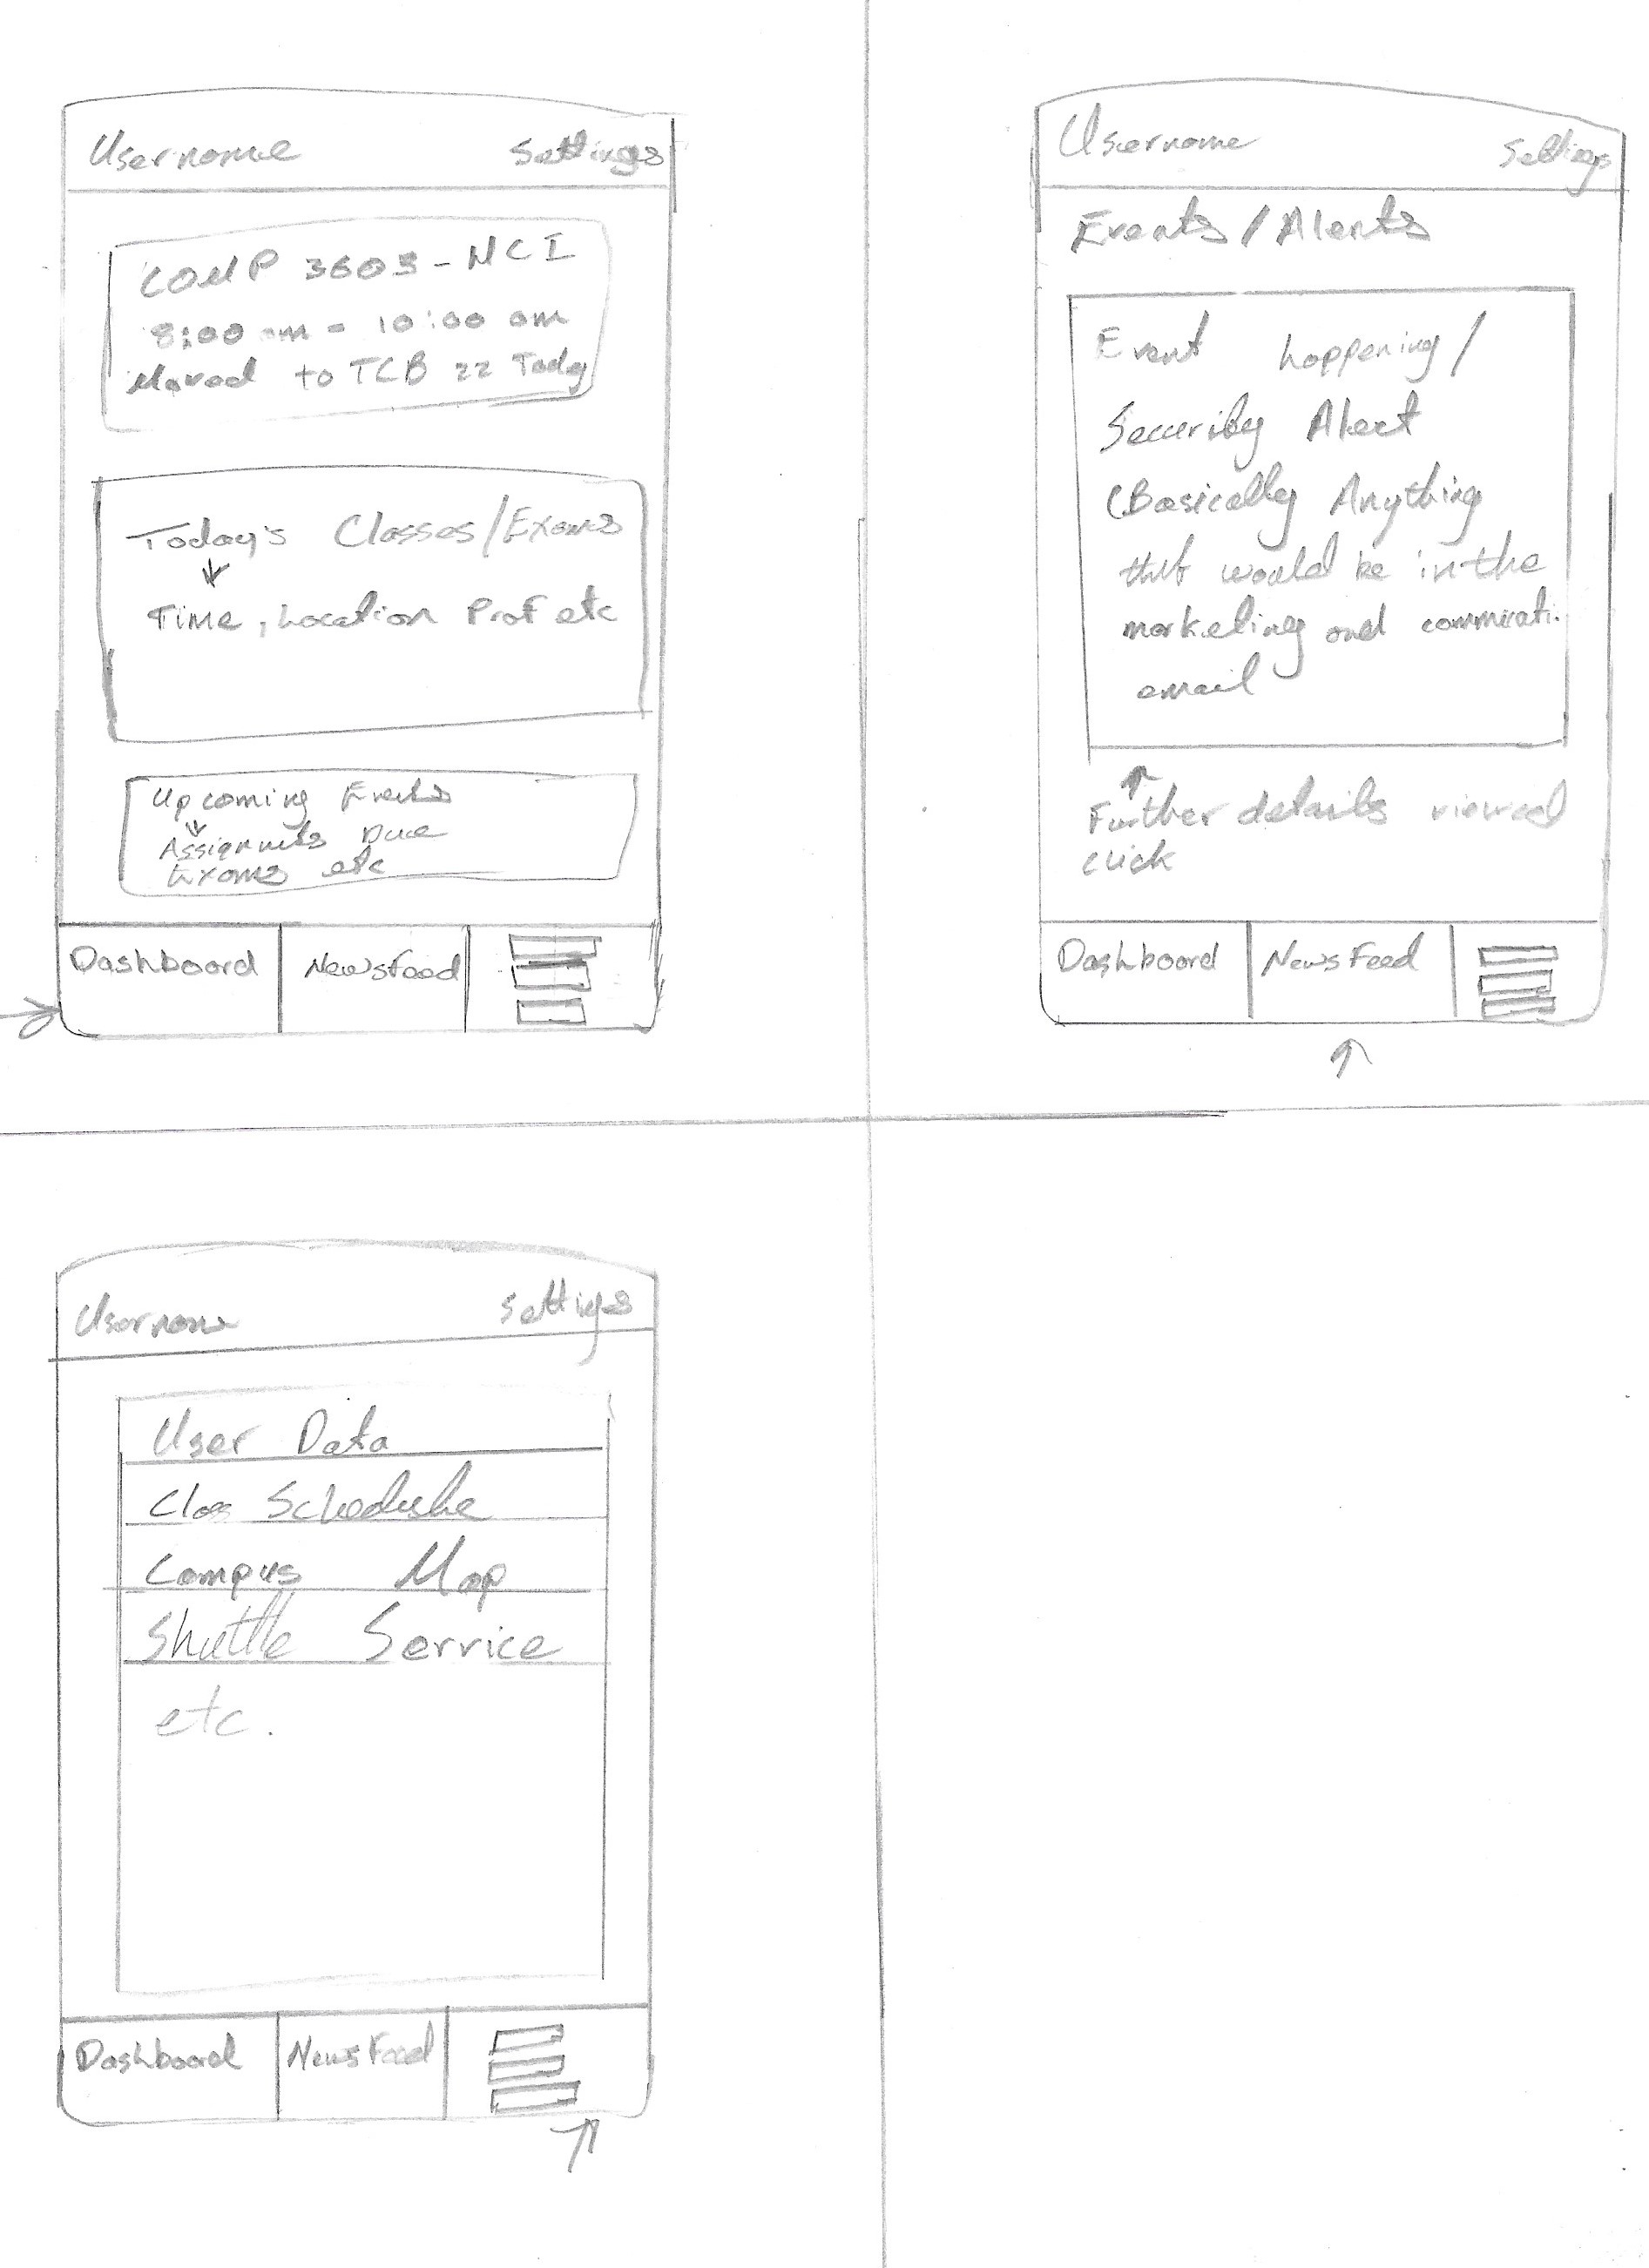 Username Settings
COMP 3603 - HCI
8:00 am - 10:00 am
Moved to TCB 22 Today
Today's Classes/Exams
Time, Location Prof etc
Upcoming Events
Assignments Due
Exams etc
Dashboard NewsFeed
Username Settings
Events / Alerts
Event happening /
Security Alert
(Basically Anything
that would be in the
marketing and
email
Further details viewed
click
Dashboard News Feed
Username Settings
User Data
Class Schedule
Campus Map
Shuttle Service
etc.
Dashboard News Feed